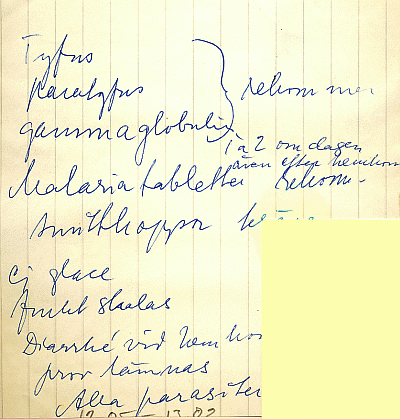 Tyfus
Paratyfus
gammaglobulin
rekommen
1 à 2 om dagen
även efter hemkom
Malariatabletter rekom-
smittkoppor
ej glace
frukt skalas
Diarrhé vid hemko
prov lämnas
Alla parasiter